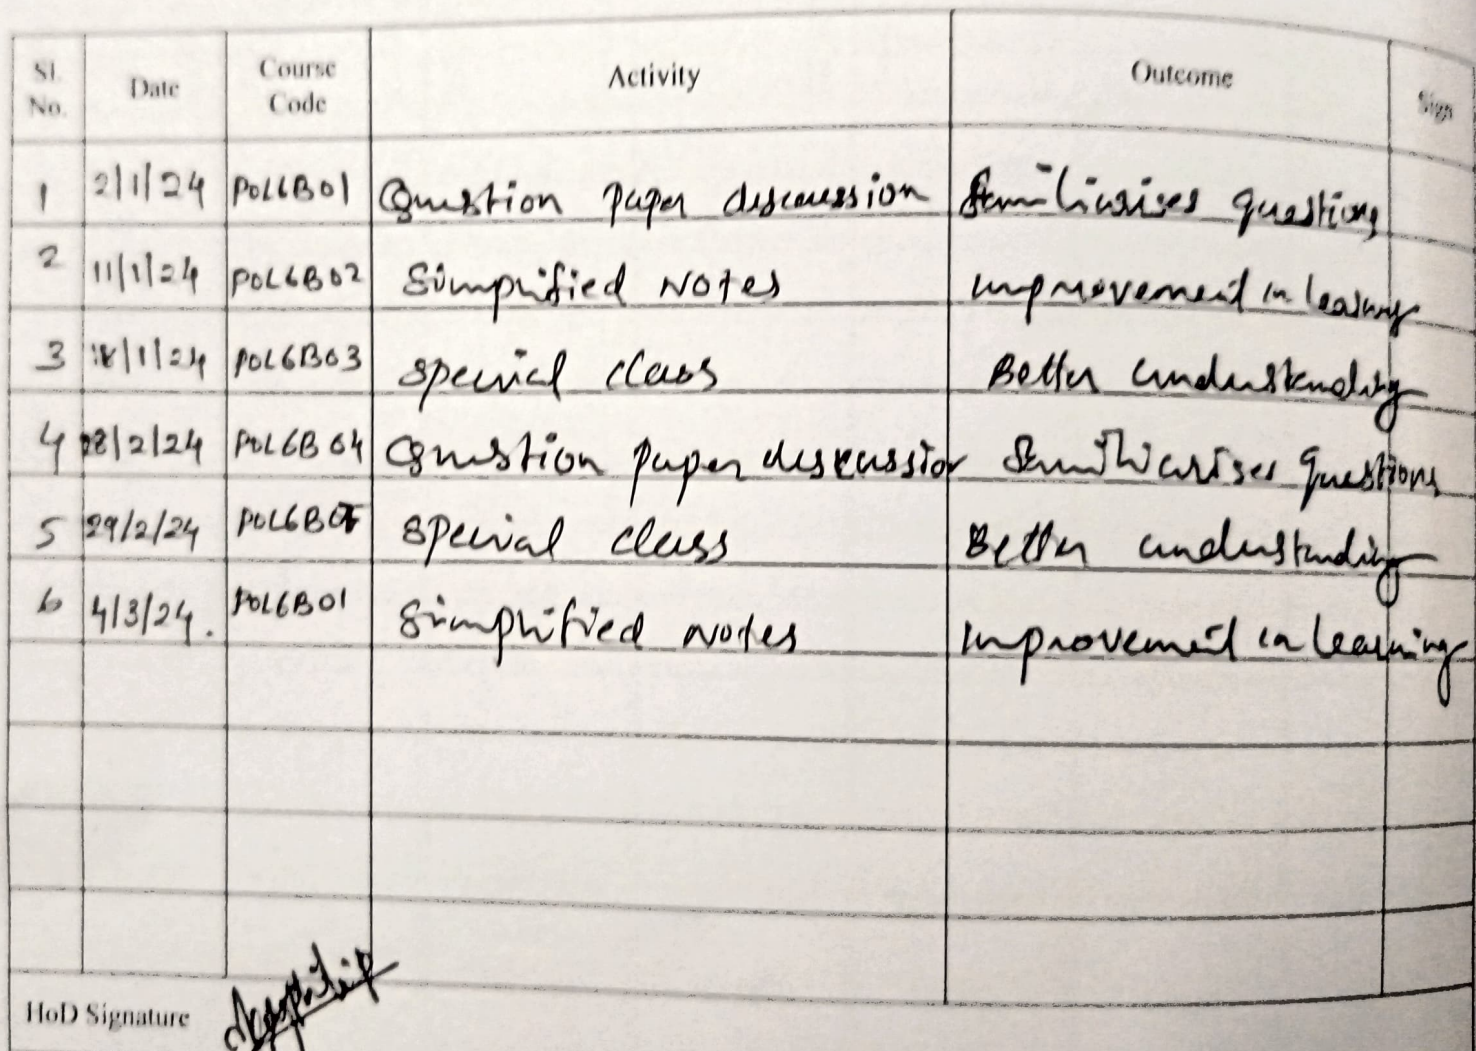 Sl. No. Date Course Code Activity Outcome Sign
1 2/1/24 POL6B01 Question paper discussion familiarises questions
2 11/1/24 POL6B02 Simplified Notes improvement in learning
3 18/1/24 POL6B03 special class Better understanding
4 08/2/24 POL6B04 Question paper discussion familiarises questions
5 29/2/24 POL6B05 special class Better understanding
6 4/3/24. POL6B01 Simplified Notes Improvement in learning
HoD Signature